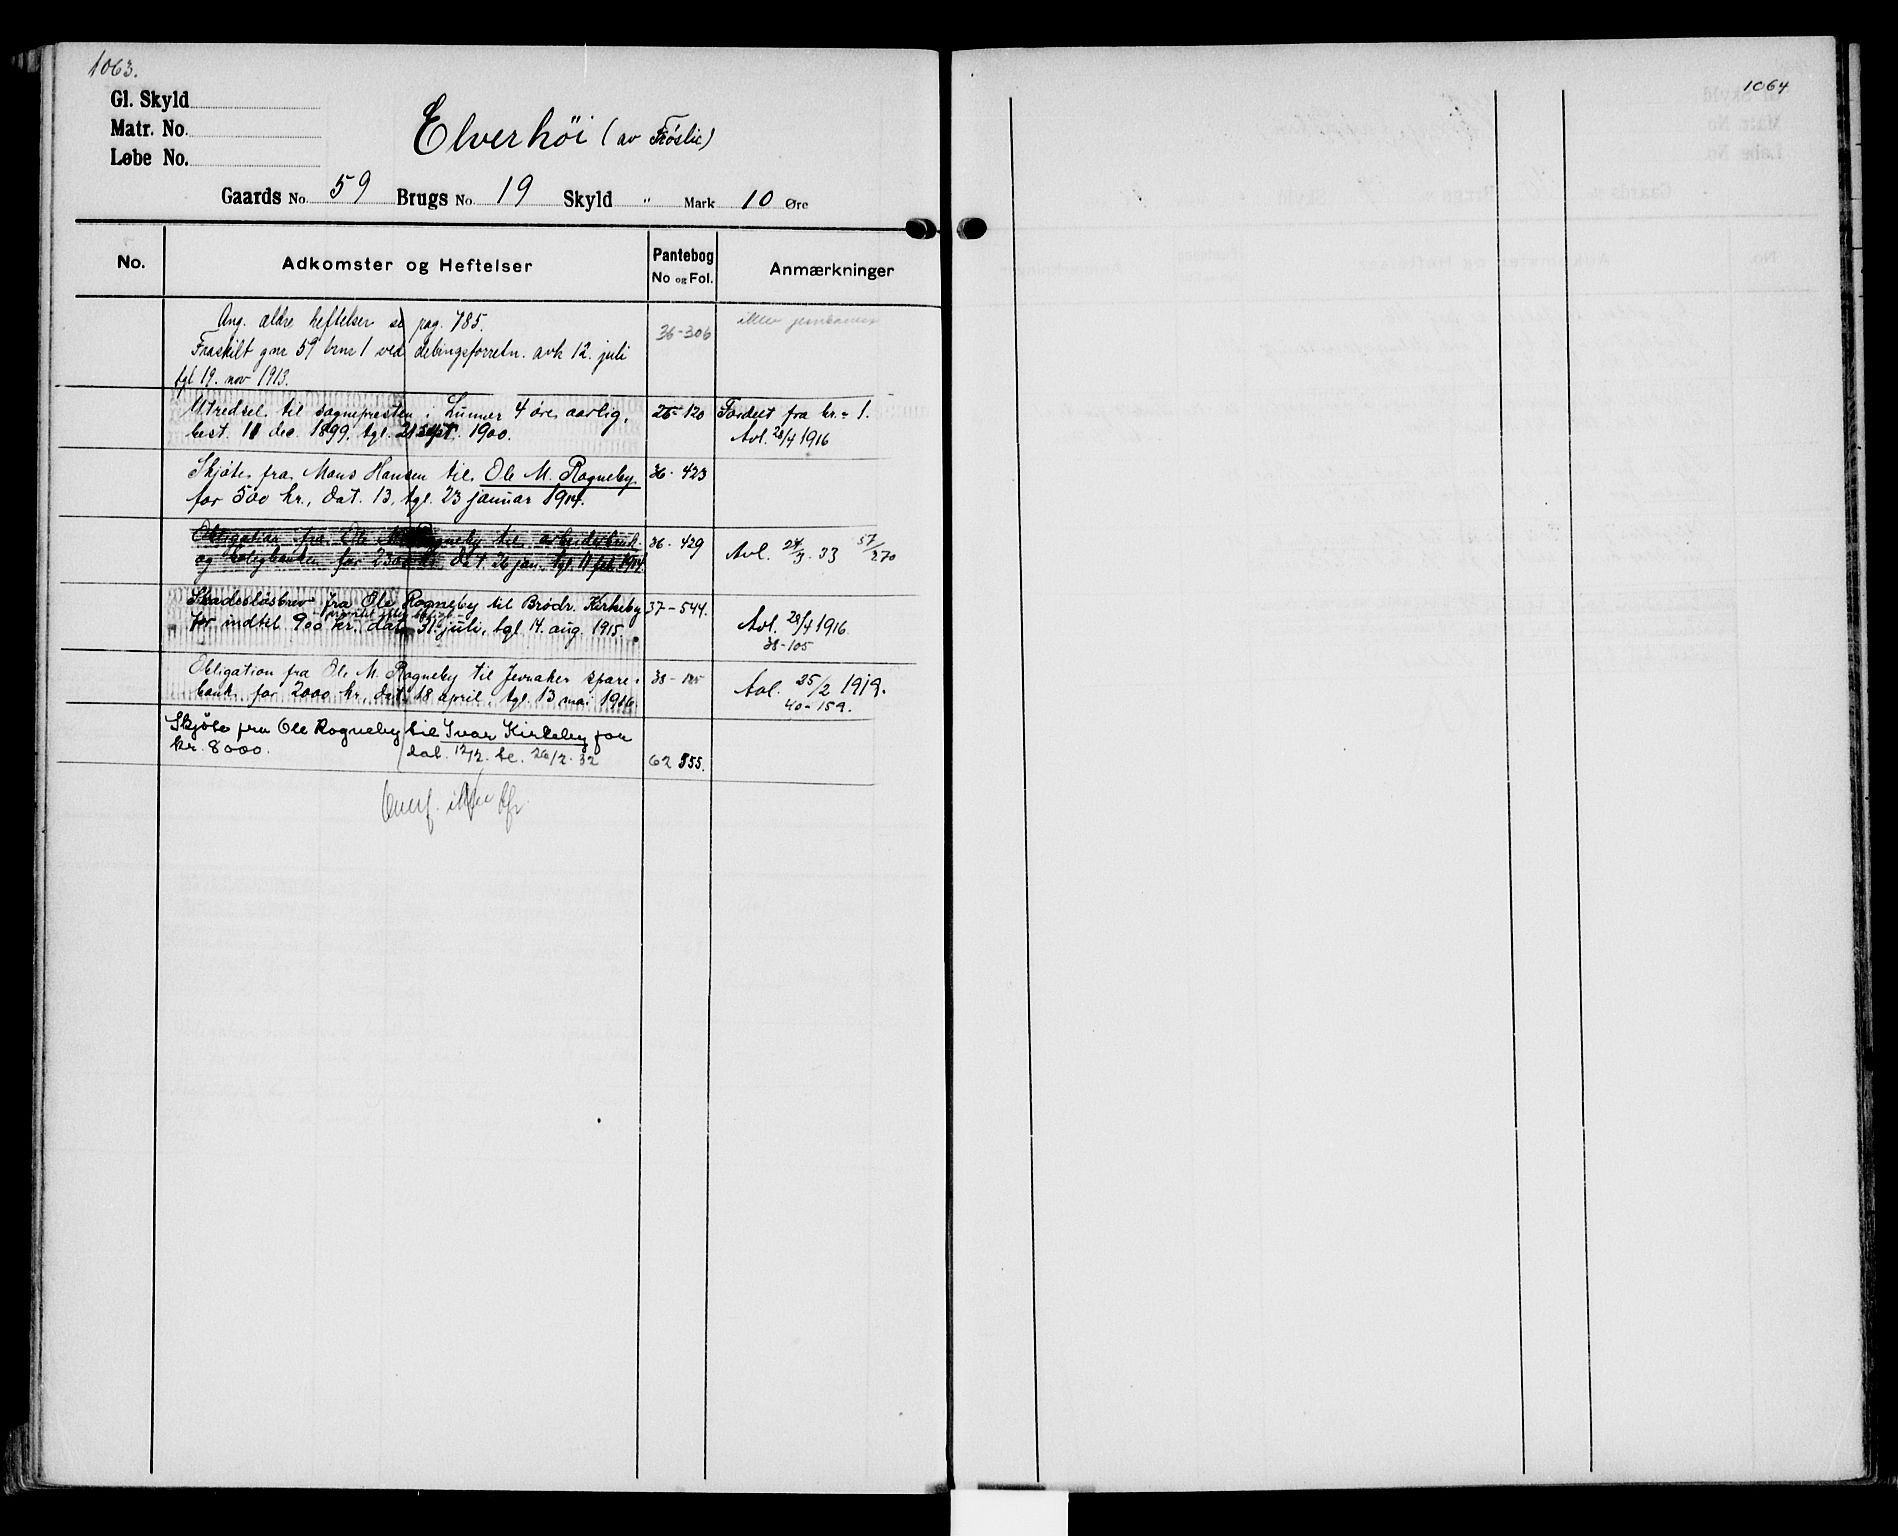 1063.
Gl. Skyld
Matr. No.
Løbe No.
Elverhöi (av Fröslie)
Gaards No. 59 Brugs No. 19 Skyld " Mark 10 Øre
No. Adkomster og Heftelser Pantebog No og Fol. Anmærkninger
Ang. ældre heftelser se pag. 785.
36-306 ikke jernbanen
Fraskilt gnr 59 brnr 1 ved delingsforretn. avh 12. juli
tgl 19. nov 1913.
Utredsel til sognepresten i Lunner 4 øre aarlig, 26-120 Fordelt fra br. 1.
best. 11 dec. 1899, tgl. 21 sept. 1900. Avl. 28/4 1916
Skjøte fra Mons Hansen til Ole M. Rogneby 36-423
for 500 kr., dat. 13, tgl. 23 januar 1914.
Obligation fra Ole M. Rogneby til arbeiderbruk- 36-429 Avl. 24/3. 33 57/270
og boligbanken for 2300 kr. dat. 26 jan., tgl. 11 feb. 1914
Skadesløsbrev fra Ole Rogneby til Brødr. Kirkeby 37-544.
for indtil 900 kr., dat. 31. juli, tgl. 14. aug. 1915. Avl. 28/4 1916
38-105
Obligation fra Ole M. Rogneby til Jevnaker spare- 38-125
bank for 2000 kr., dat. 18 april, tgl. 13 mai 1916. Avl. 25/2 1919.
40-159.
Skjøte fra Ole Rogneby til Ivar Kirkeby for
kr. 8000. dat. 12/2. te. 26/2. 32 62 355.
1064